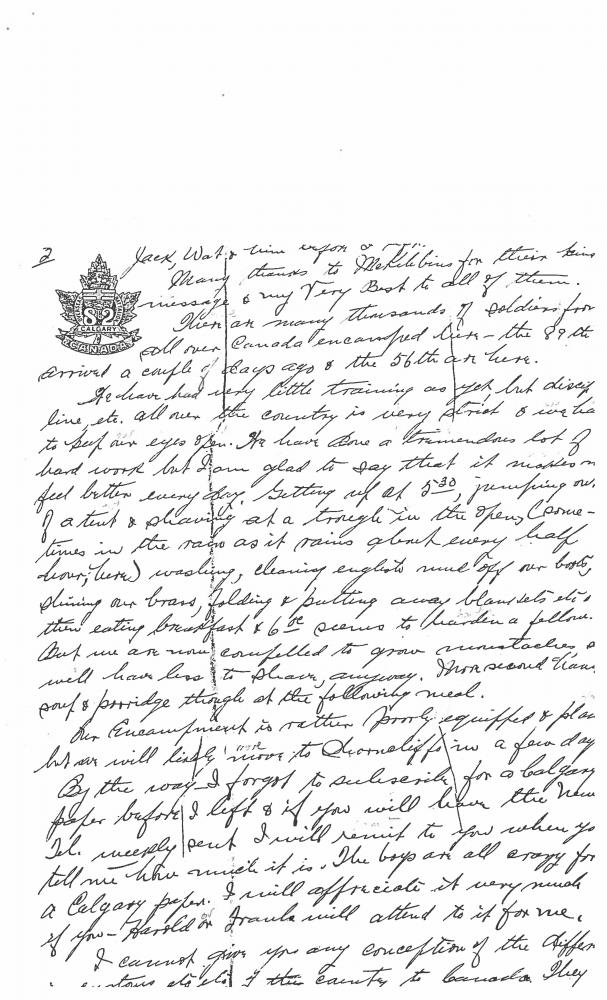 2
82
CALGARY
CANADA
Jack, Wat &
Many thanks to McKibbins for their kind
message & my Very Best to all of them.
There are many thousands of soldiers from
all over Canada encamped here – the 89th
arrived a couple of days ago & the 56th are here.
We have had very little training as yet but discip
line, etc. all over the country is very strict & we
to keep our eyes open. We have done a tremendous lot of
hard work but I am glad to say that it makes
feel better every day. Getting up at 5 30, jumping out
of a tent & shaving at a trough in the open, (some-
times in the rain as it rains about every half
hour, here) washing, cleaning english mud off our boots,
shining our brass, folding & putting away blankets etc &
then eating breakfast & 6 seems to harden a fellow.
But we are now compelled to grow moustaches, so
will have less to shave, anyway. More second hand
soup & porridge though at the following meal.
Our Encampment is rather poorly equipped &
but we will likely move to Shorncliffe in a few day
By the way – I forgot to subscribe for a Calgary
paper before I left & if you will have the New
Tel. weekly sent I will remit to you when yo
tell me how much it is. The boys are all crazy for
a Calgary paper. I will appreciate it very much
if you – Harold or Frank will attend to it for me.
I cannot give you any conception of the differ
customs etc etc of this country to Canada. They